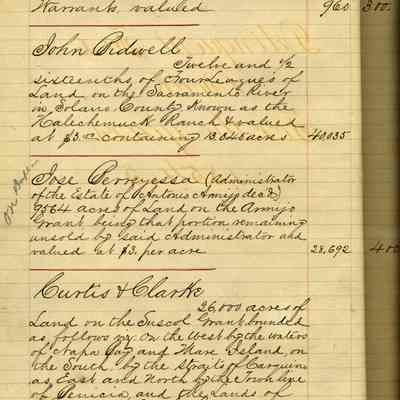 Warrants, valued 960 300.
John Bidwell
Twelve and 1/2
sixteenths of Four Leagues of
Land on the Sacramento River
in Solano County Known as the
Halechemuck Ranch & valued
at $3.00 containing 13.345 acres 40,035
Jose Berryessa (Administrator
of the Estate of Antonio Armijo decd)
9564 acres of Land on the Armijo
Grant being that portion remaining
unsold by said Administrator and
valued at $3. per acre 28,692 400
Curtis & Clarke
26,000 acres of
Land on the Suscol Grant bounded
as follows viz On the West by the waters
of Napa Bay and Mare Island, on
the South by the Straits of Carquin
as, East and North by the Town line
of Benicia, and the Lands of